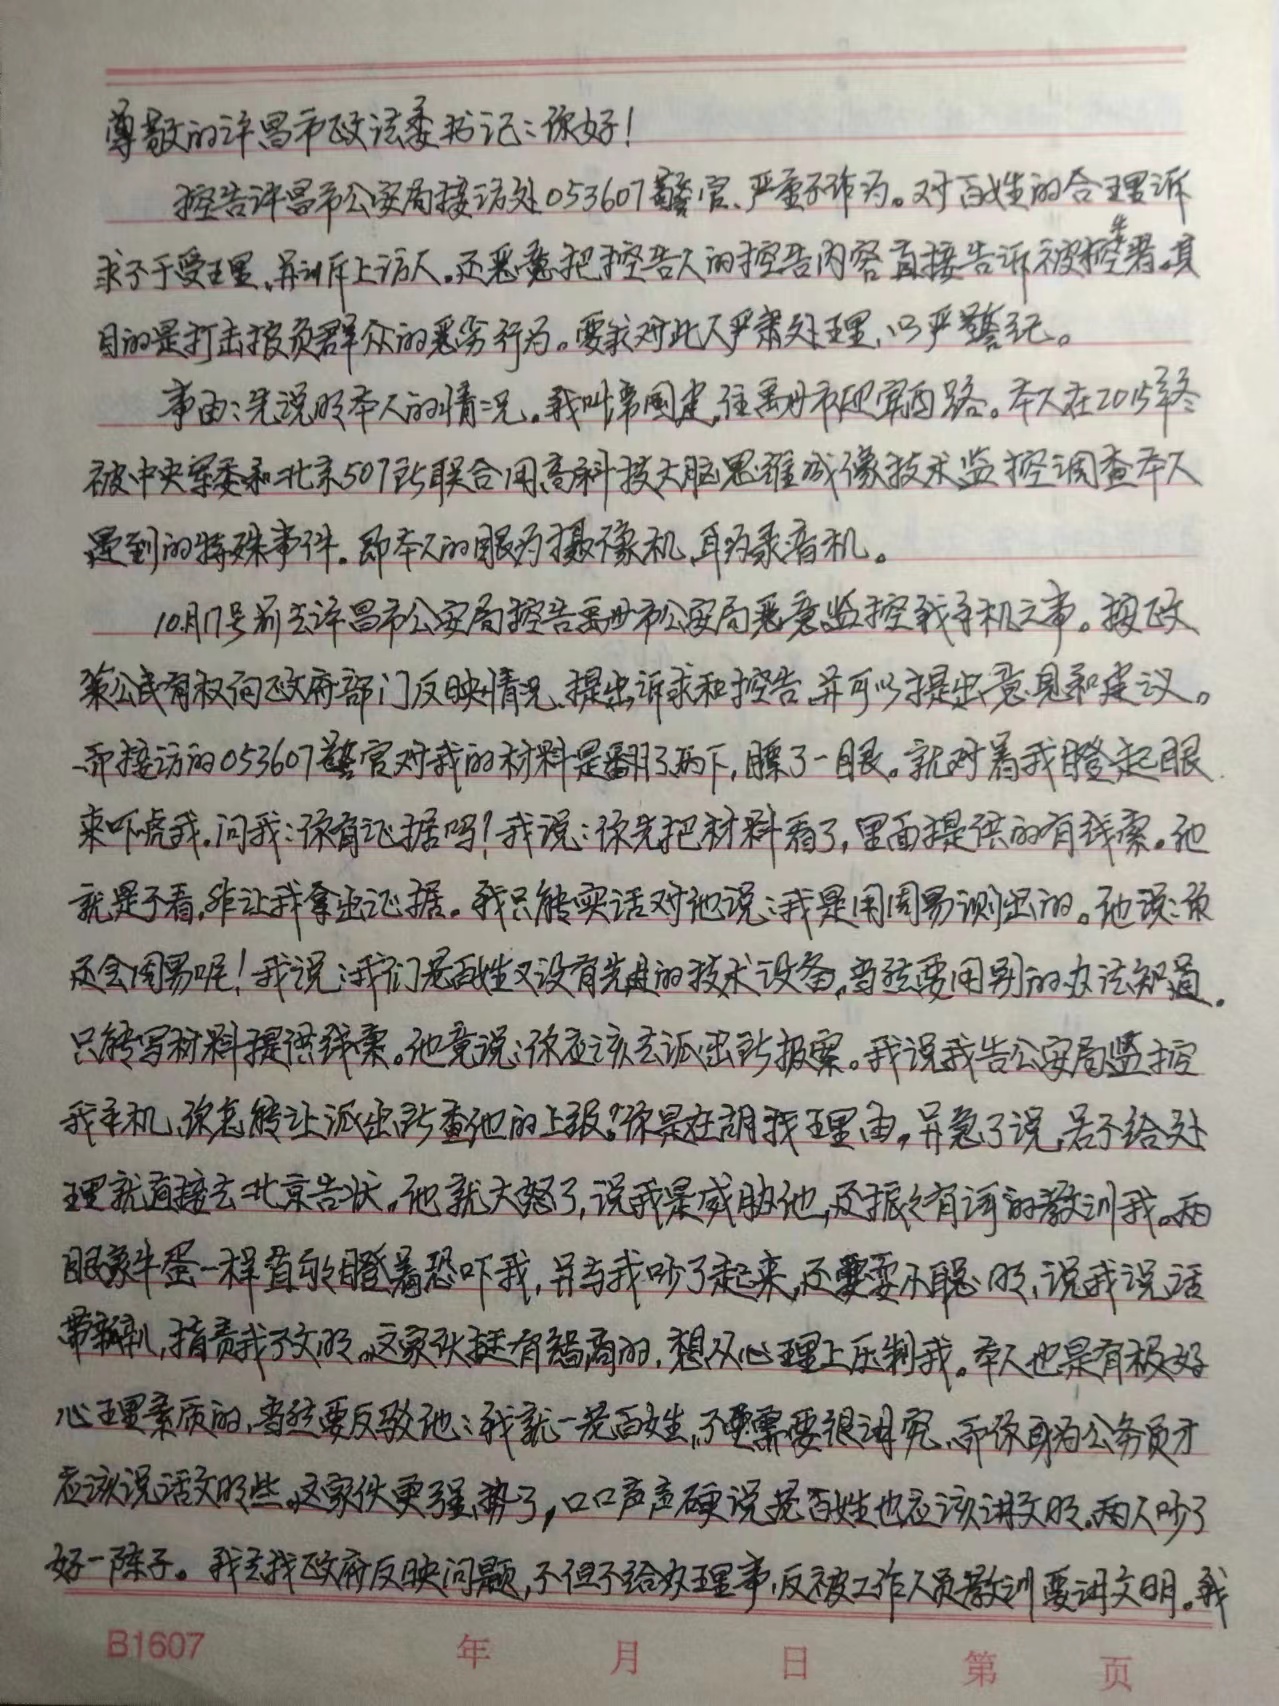 尊敬的许昌市政法委书记：你好！
控告许昌市公安局接访处053607警官、严重不作为。对百姓的合理诉
求不于受理、并训斥上访人。还恶意把控告人的控告内容直接告诉被控告者。其
目的是打击报负群众的恶劣行为。要求对此人严肃处理，以严警纪。
事由：先说明本人的情况。我叫常国建，住禹州市砚宾西路。本人在2015年终
被中央军委和北京507所联合用高科技大脑思维成像技术监控调查本人
遇到的特殊事件。即本人的眼为摄像机、耳为录音机。
10月17号前去许昌市公安局控告禹州市公安局恶意监控我手机之事。按政
策公民有权向政府部门反映情况、提出诉求和控告、并可以提出意见和建议。
而接访的053607警官对我的材料是翻了两下，瞟了一眼。就对着我瞪起眼
来吓虎我。问我：你有证据吗！我说：你先把材料看了，里面提供的有线索。他
就是不看，非让我拿出证据。我只能实话对他说：我是用周易测出的。他说：你
还会周易呢！我说：我们老百姓又没有先进的技术设备，当然要用别的办法知道。
只能写材料提供线索。他竟说：你应该去派出所报案。我说我告公安局监控
我手机、你怎能让派出所查他的上级？你是在胡找理由，并急了说，若不给处
理就直接去北京告状。他就大怒了，说我是威胁他，还振振有词的教训我。两
眼象牛蛋一样直勾勾瞪着恐吓我，并与我吵了起来，还耍小聪明，说我说话
带，指责我不文明。这家伙挺有智商的，想从心理上压制我。本人也是有极好
心理素质的，当然要反驳他：我就一老百姓，不需要很讲究、而你身为公务员才
应该说话文明些。这家伙更强势了，口口声声硬说老百姓也应该讲文明。两人吵了
好一阵子。我去找政府反映问题，不但不给办理事，反被工作人员教训要讲文明。我
B1607 年 月 日 第 页